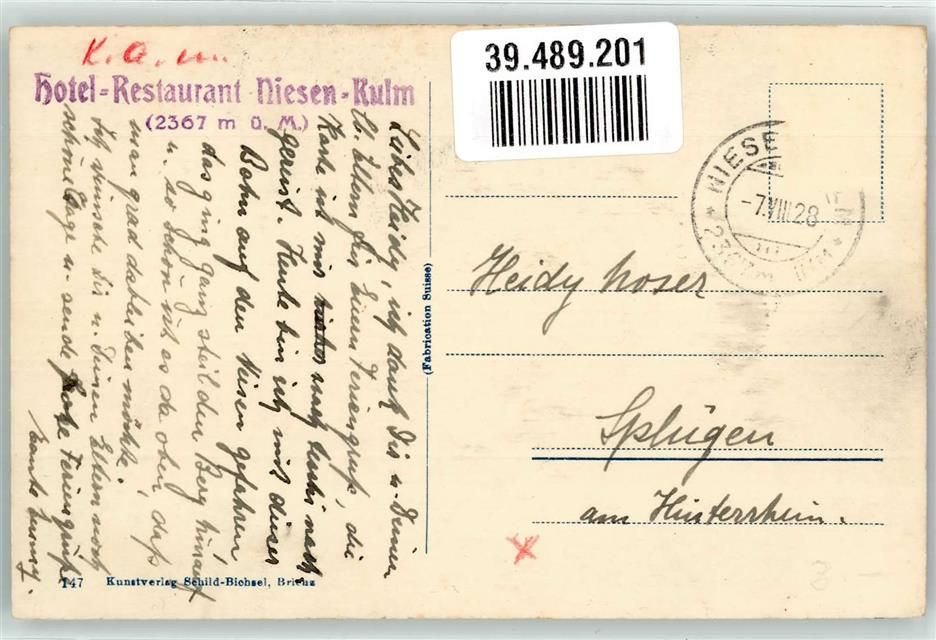 K. A. m.
Hotel-Restaurant Niesen-Kulm
(2367 m ü. M.)
39.489.201
NIESEN
-7.VIII.28
2367 m ü. M.
Liebes Heidy, ich danke Dir u. Deinen
lb. Eltern für Euern Feriengruss, die
Karte ist mir nach
gereist. Heute bin ich mit dieser
Bahn auf den Niesen gefahren
das ging ganz steil den Berg hinauf
u. so schön ist es da oben dass
man grad dableiben möchte.
Ich wünsche Dir u. Deinen Eltern noch
schöne Tage u. sende frohe Feriengrüsse
Tante Emmy.
(Fabrication Suisse)
Heidy Moser
Splügen
am Hinterrhein.
147 Kunstverlag Schild-Bichsel, Brienz